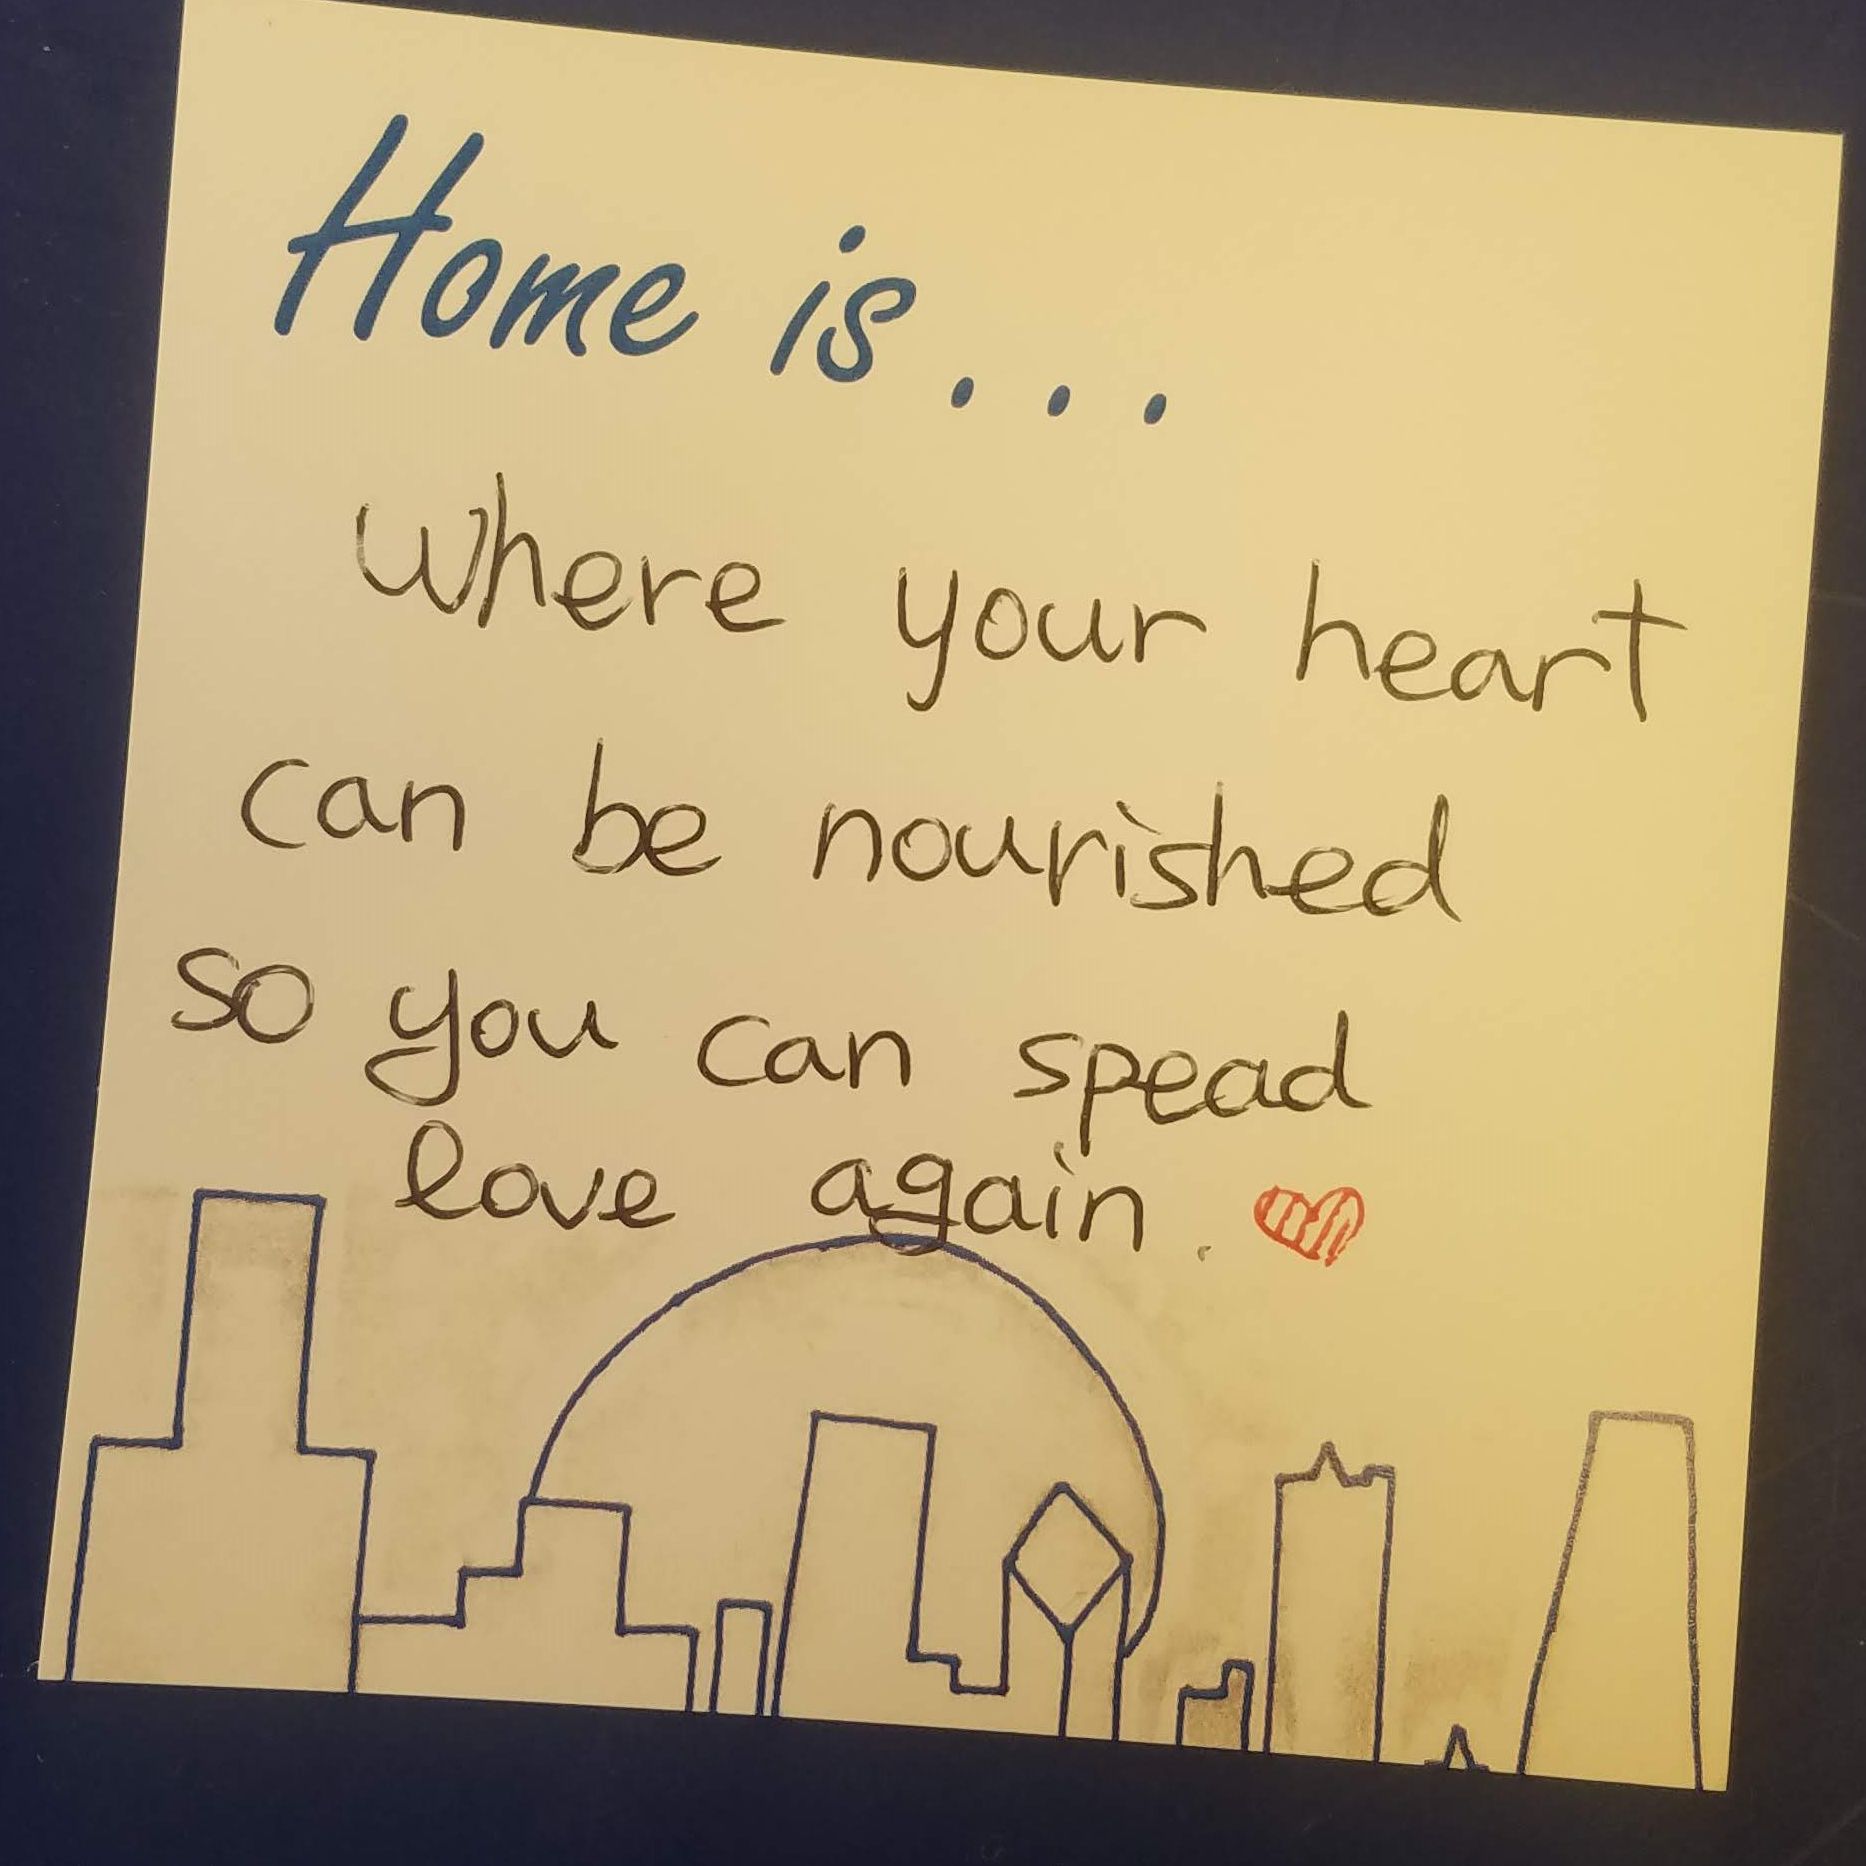 Home is...
where your heart
can be nourished
so you can spead
love again.